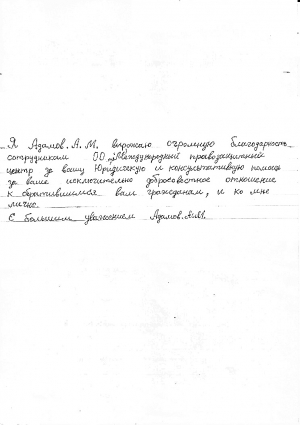 Я Адамов. А. М. выражаю огромную благодарность
сотрудникам ОО "Международный правозащитный
центр за вашу Юридическую и консультативную помощь
за ваше исключительно добросовестное отношение
к обратившимся вам гражданам, и ко мне
лично
С большим уважением Адамов. А.М.